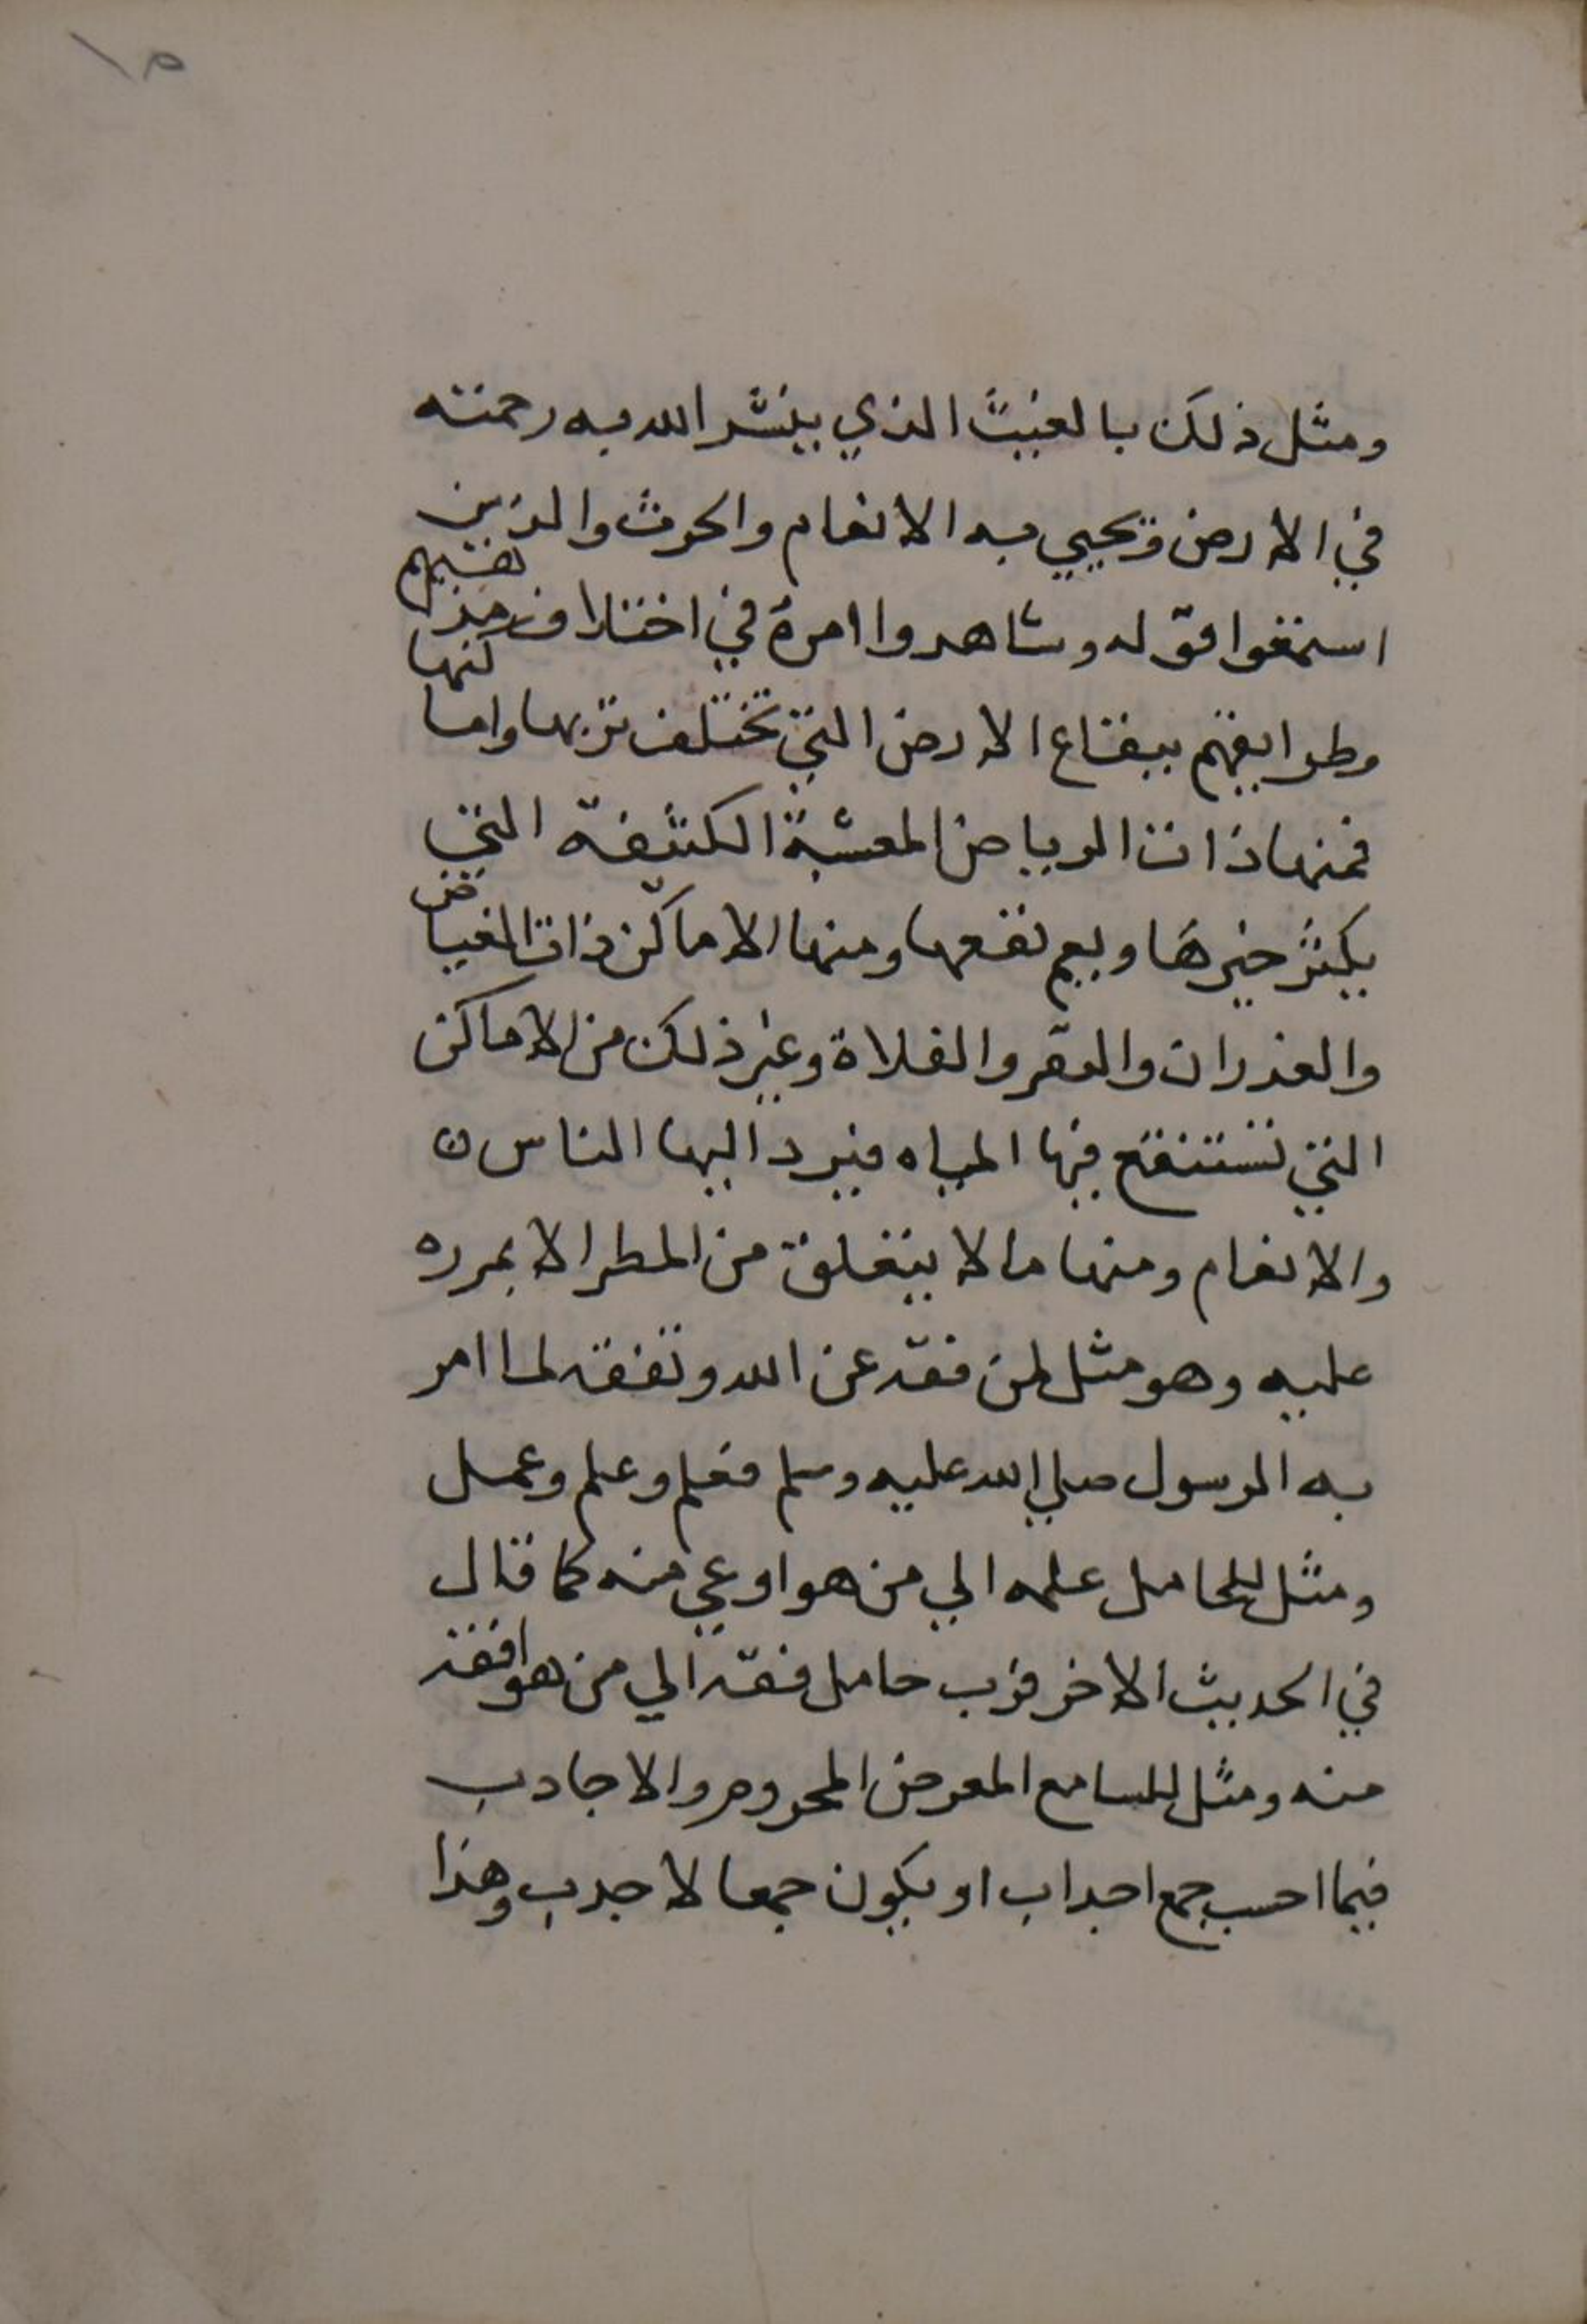 ١٥
ومثل ذلك بالغيث الذي ينشر الله به رحمته
في الارض ويحيي به الانعام والحرث والذين
استمعوا قوله وشاهدوا امره في اختلاف
وطرايقهم ببقاع الارض التي تختلف تربها واما كنها
فمنها ذات الرياض المعشبة الكثيفة التي
يكثر خيرها ويعم نفعها ومنها الاماكن ذات الغياض
والغدران والقفر والفلاة وغير ذلك من الاماكن
التي تستنقع فيها المياه فيرد اليها الناس
والانعام ومنها ما لا يتعلق من المطر الا بمرره
عليه وهو مثل لمن فقه عن الله وتفقه لما امر
به الرسول صلي الله عليه وسلم فعلم وعلم وعمل
ومثل للحامل علمه الي من هو اوعي منه كما قال
في الحديث الاخر فرب حامل فقه الي من هو افقه
منه ومثل للسامع المعرض المحروم والاجادب
فيما احسب جمع اجداب او يكون جمعا لاجدب وهذا